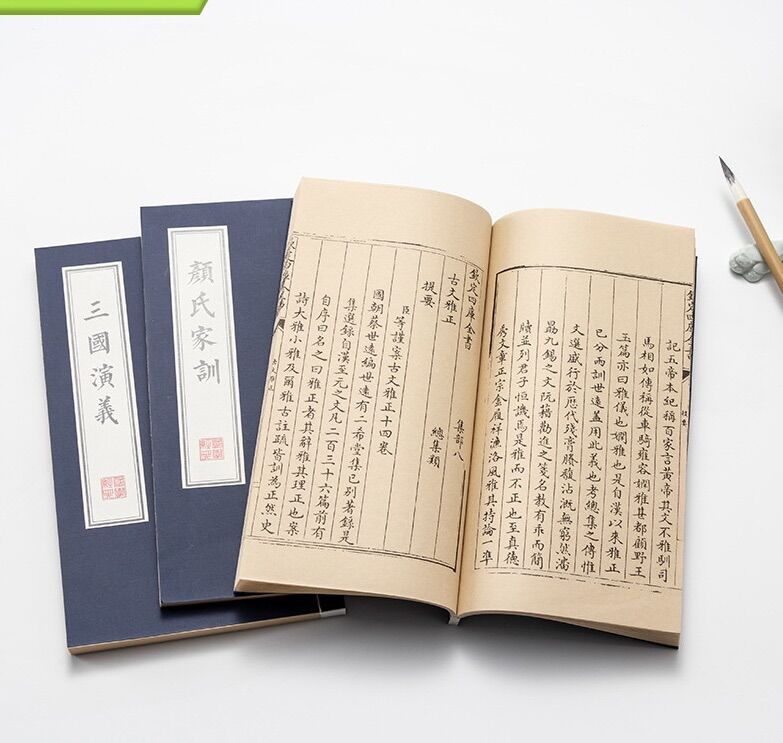 三國演義
顏氏家訓
欽定四庫全書
古文雅正 集部八
提要 總集類
臣等謹案古文雅正十四卷
國朝蔡世遠編世遠有二希堂集已別著錄是
集選錄自漢至元之文凡二百三十六篇前有
自序曰名之曰雅正者其辭雅其理正也案
詩大雅小雅及爾雅古註疏皆訓為正然史
記五帝本紀稱百家言黃帝其文不雅馴司
馬相如傳稱從車騎雍容嫻雅甚都顧野王
玉篇亦曰雅儀也嫻雅也是自漢以來雅正
已分兩訓世遠蓋用此義也考總集之傳惟
文選盛行於歷代殘膏賸馥沾溉無窮然潘
勗九錫之文阮籍勸進之箋名教有乖而簡
牘並列君子恒譏焉是雅而不正也至真德
秀文章正宗金履祥濂洛風雅其持論一準